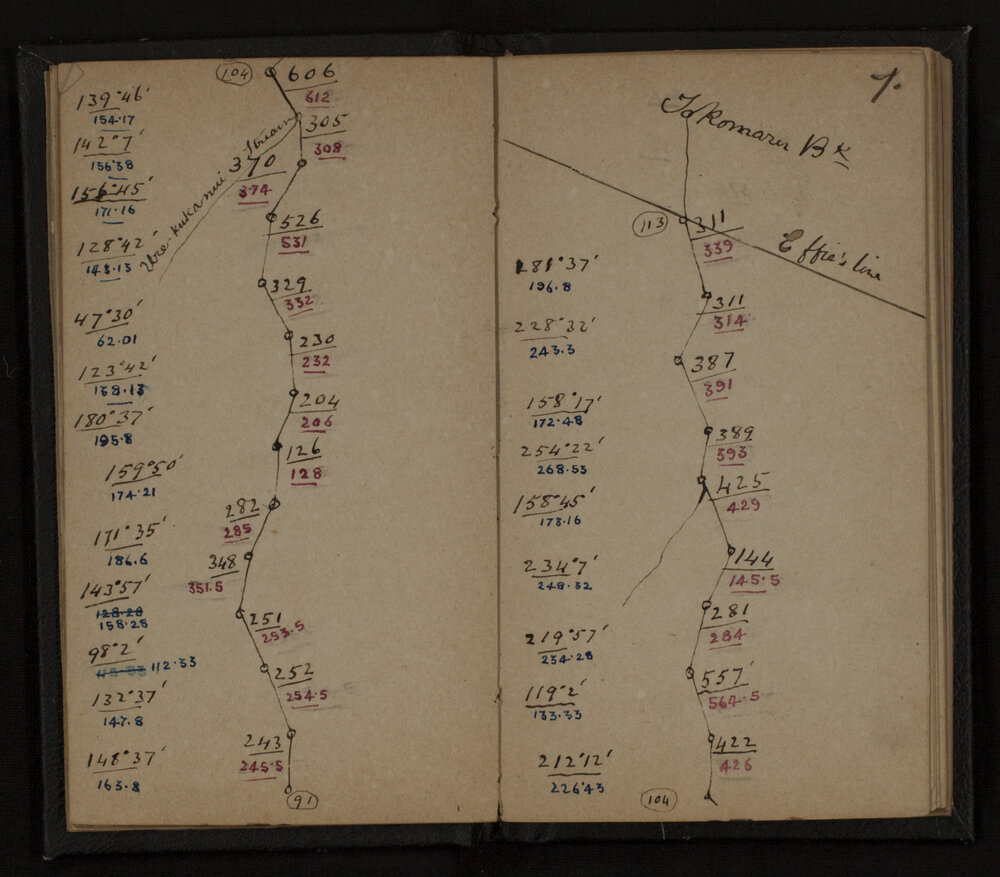 104 606
139°46' 612
154·17 305
142°7' Stream 308
156·38 370
156°45' 374
171·16 526
128°42' 531
143·13 329
332
47°30' 230
62·01 232
123°42' 204
138·13 206
180°37' 126
195·8 128
159°50' 282
174·21 285
171°35' 348
186·6 351·5
143°57' 251
128·28 253·5
158·28
98°2' 252
112·33 254·5
132°37'
147·8 243
148°37' 245·5
163·8 91
7.
Tokomaru Bk
113 311
339
Effie's line
181°37' 311
196·8 314
228°32' 387
243·3 391
158°17' 389
172·48 393
254°22' 425
268·53 429
158°45'
173·16 144
234°7' 145·5
248·32 281
284
219°57' 557
234·28 564·5
119°2'
133·33 422
212°12' 426
226·43 104